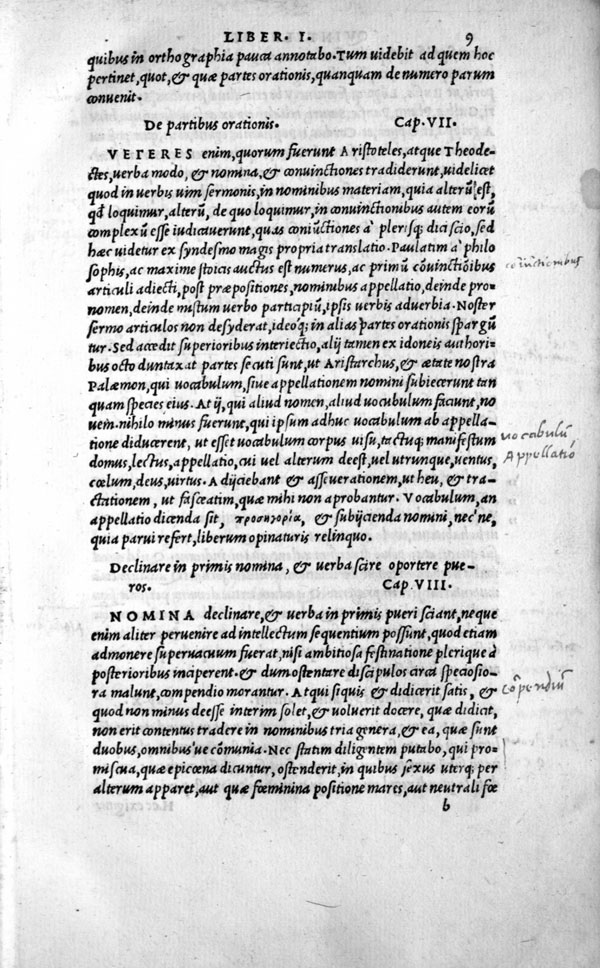 LIBER. I. 9
quibus in orthographia pauca annotabo. Tum uidebit ad quem hoc
pertinet, quot, & quæ partes orationis, quanquam de numero parum
conuenit.
De partibus orationis. Cap. VII.
VETERES enim, quorum fuerunt Aristoteles, atque Theode-
ctes, uerba modo, & nomina, & conuinctiones tradiderunt, uidelicet
quod in uerbis uim sermonis, in nominibus materiam, quia alterũ est,
qđ loquimur, alterũ, de quo loquimur, in conuinctionibus autem eorũ
complexũ esse iudicauerunt, quas coniũctiones à plerisq; dici scio, sed
hæc uidetur ex syndesmo magis propria translatio. Paulatim à philo
sophis, ac maxime stoicis auctus est numerus, ac primũ cõuinctiõibus
articuli adiecti, post præpositiones, nominibus appellatio, deinde pro-
nomen, deinde mistum uerbo participiũ, ipsis uerbis aduerbia. Noster
sermo articulos non desyderat, ideoq; in alias partes orationis spargũ
tur. Sed accedit superioribus interiectio, alij tamen ex idoneis authori-
bus octo duntaxat partes secuti sunt, ut Aristarchus, & ætate nostra
Palæmon, qui uocabulum, siue appellationem nomini subiecerunt tan
quam species eius. At ij, qui aliud nomen, aliud uocabulum faciunt, no
uem. nihilo minus fuerunt, qui ipsum adhuc uocabulum ab appella-
tione diducerent, ut esset uocabulum corpus uisu, tactuq; manifestum
domus, lectus, appellatio, cui uel alterum deest, uel utrunque, uentus,
cœlum, deus, uirtus. Adijciebant & asseuerationem, ut heu, & tra-
ctationem, ut fasceatim, quæ mihi non aprobantur. Vocabulum, an
appellatio dicenda sit, προσηγορία, & subijcienda nomini, nec'ne,
quia parui refert, liberum opinaturis relinquo.
Declinare in primis nomina, & uerba scire oportere pue-
ros. Cap. VIII.
NOMINA declinare, & uerba in primis pueri sciant, neque
enim aliter peruenire ad intellectum sequentium possunt, quod etiam
admonere superuacuum fuerat, nisi ambitiosa festinatione plerique à
posterioribus inciperent. & dum ostentare discipulos circa speciosio-
ra malunt, compendio morantur. Atqui siquis & didicerit satis, &
quod non minus deesse interim solet, & uoluerit docere, quæ didicit,
non erit contentus tradere in nominibus tria genera, & ea, quæ sunt
duobus, omnibus'ue cõmunia. Nec statim diligentem putabo, qui pro-
miscua, quæ epicœna dicuntur, ostenderit, in quibus sexus uterq; per
alterum apparet, aut quæ fœminina positione mares, aut neutrali fœ
b
uocabulũ
Appellatiõ
cõpendiũ